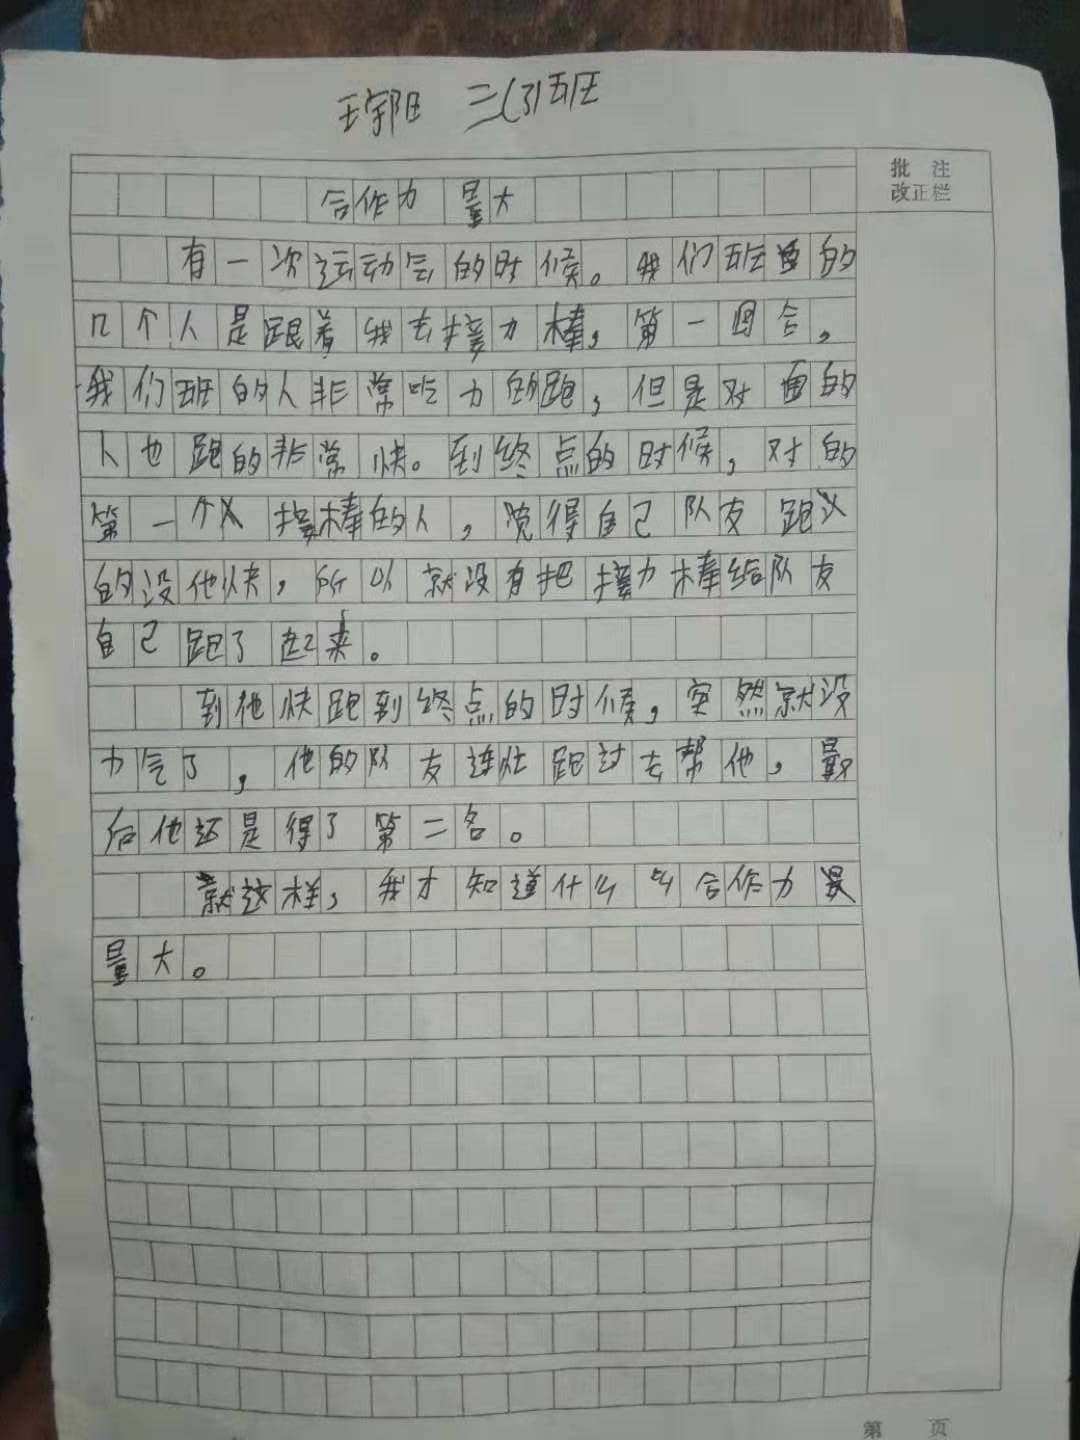 王宇阳 三(3)班
批 注
改正栏
合作力量大
有一次运动会的时候。我们班里的
几个人是跟着我去接力棒，第一回合，
我们班的人非常吃力的跑，但是对面的
人也跑的非常快。到终点的时候，对的
第一个 接棒的人，觉得自己队友跑
的没他快，所以就没有把接力棒给队友
自己跑了起来。
到他快跑到终点的时候，突然就没
力气了，他的队友连忙跑过去帮他，最
后他还是得了第二名。
就这样，我才知道什么叫合作力
量大。
第 页